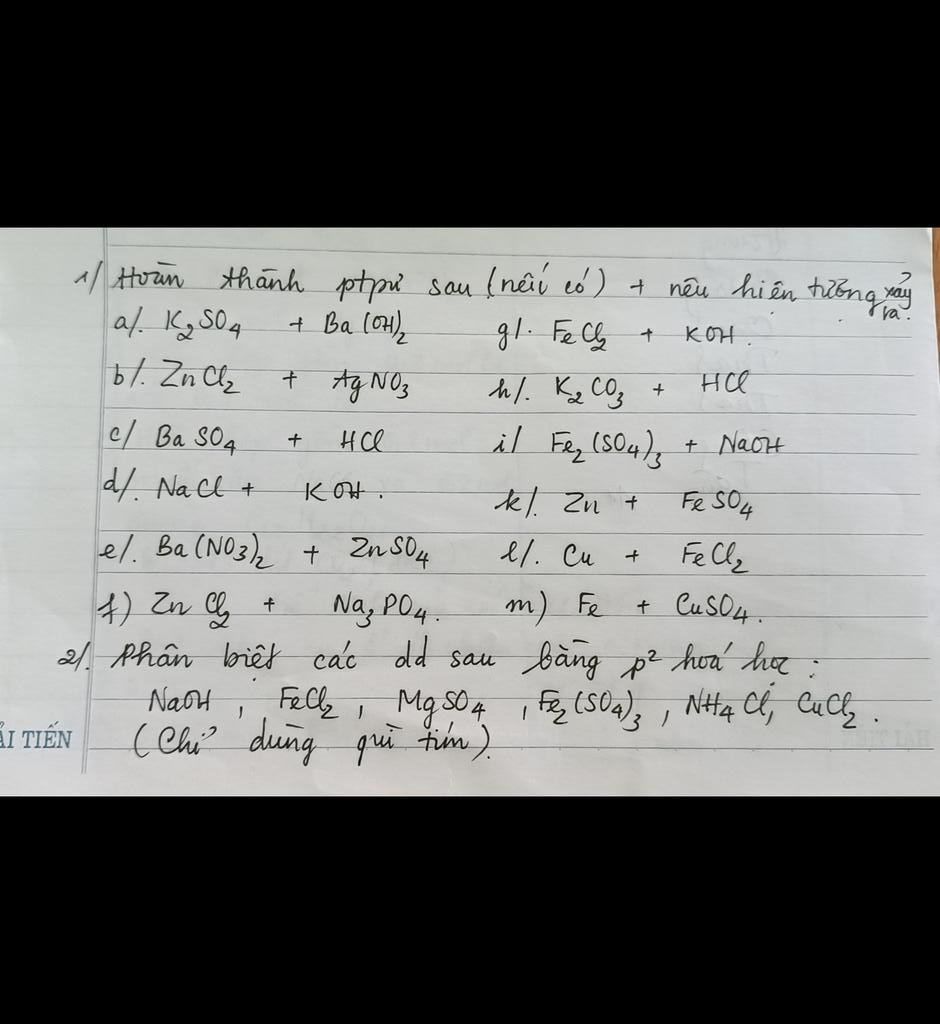 1/ Hoàn thành ptpứ sau (nếu có) + nêu hiện tượng xảy ra.
a/. K₂SO₄ + Ba(OH)₂ g/. FeCl₂ + KOH.
b/. ZnCl₂ + AgNO₃ h/. K₂CO₃ + HCl
c/ BaSO₄ + HCl i/ Fe₂(SO₄)₃ + NaOH
d/. NaCl + KOH. k/. Zn + FeSO₄
e/. Ba(NO₃)₂ + ZnSO₄ l/. Cu + FeCl₂
f) ZnCl₂ + Na₃PO₄. m) Fe + CuSO₄.
2/. Phân biệt các dd sau bằng p² hoá học :
NaOH, FeCl₂, MgSO₄, Fe₂(SO₄)₃, NH₄Cl, CuCl₂.
ẢI TIẾN (Chỉ dùng quì tím).